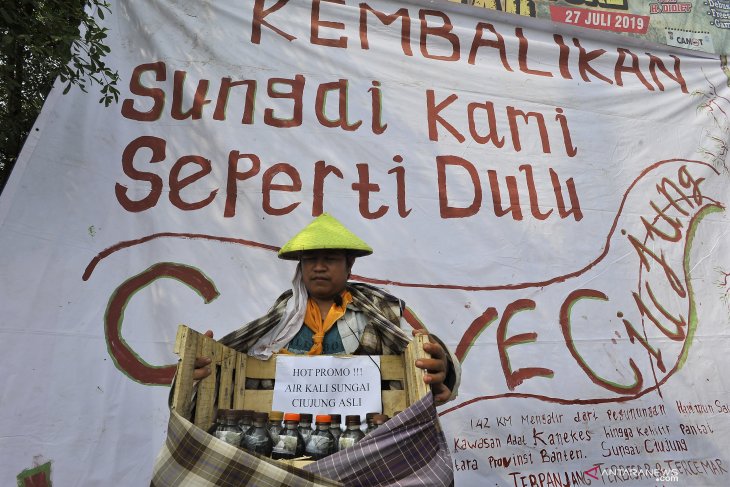 R. DIDIET
27 JULI 2019
CAMOT
KEMBALIKAN
Sungai Kami
Seperti Dulu
CiUJUNG
HOT PROMO !!!
AIR KALI SUNGAI
CIUJUNG ASLI
142 KM Mengalir dari Pegunungan
Kawasan Adat Kanekes hingga pantai
Utara Provinsi Banten. Sungai Ciujung
TERPANJANG TERCEMAR
ANTARANEWS.com